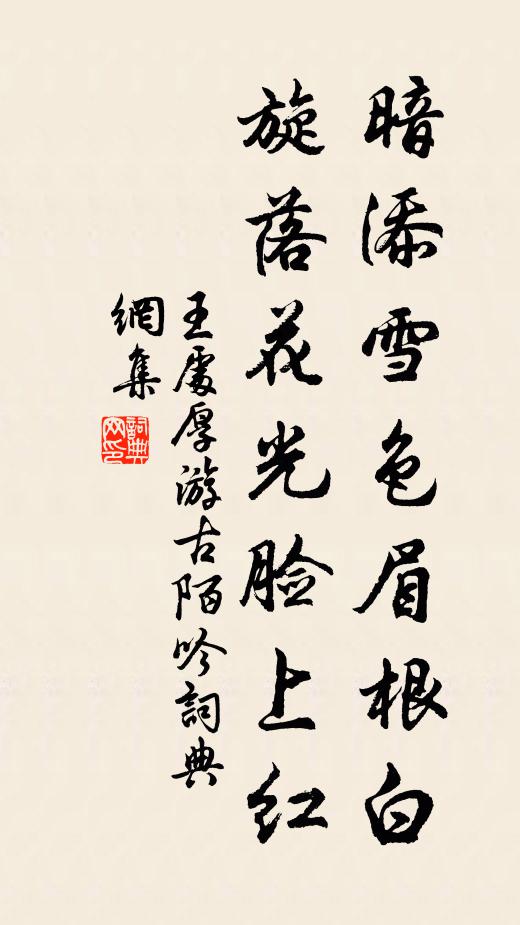 暗添雪色眉根白
旋落花光脸上红
王處厚游古陌吟詞典
網集
詞典
网印